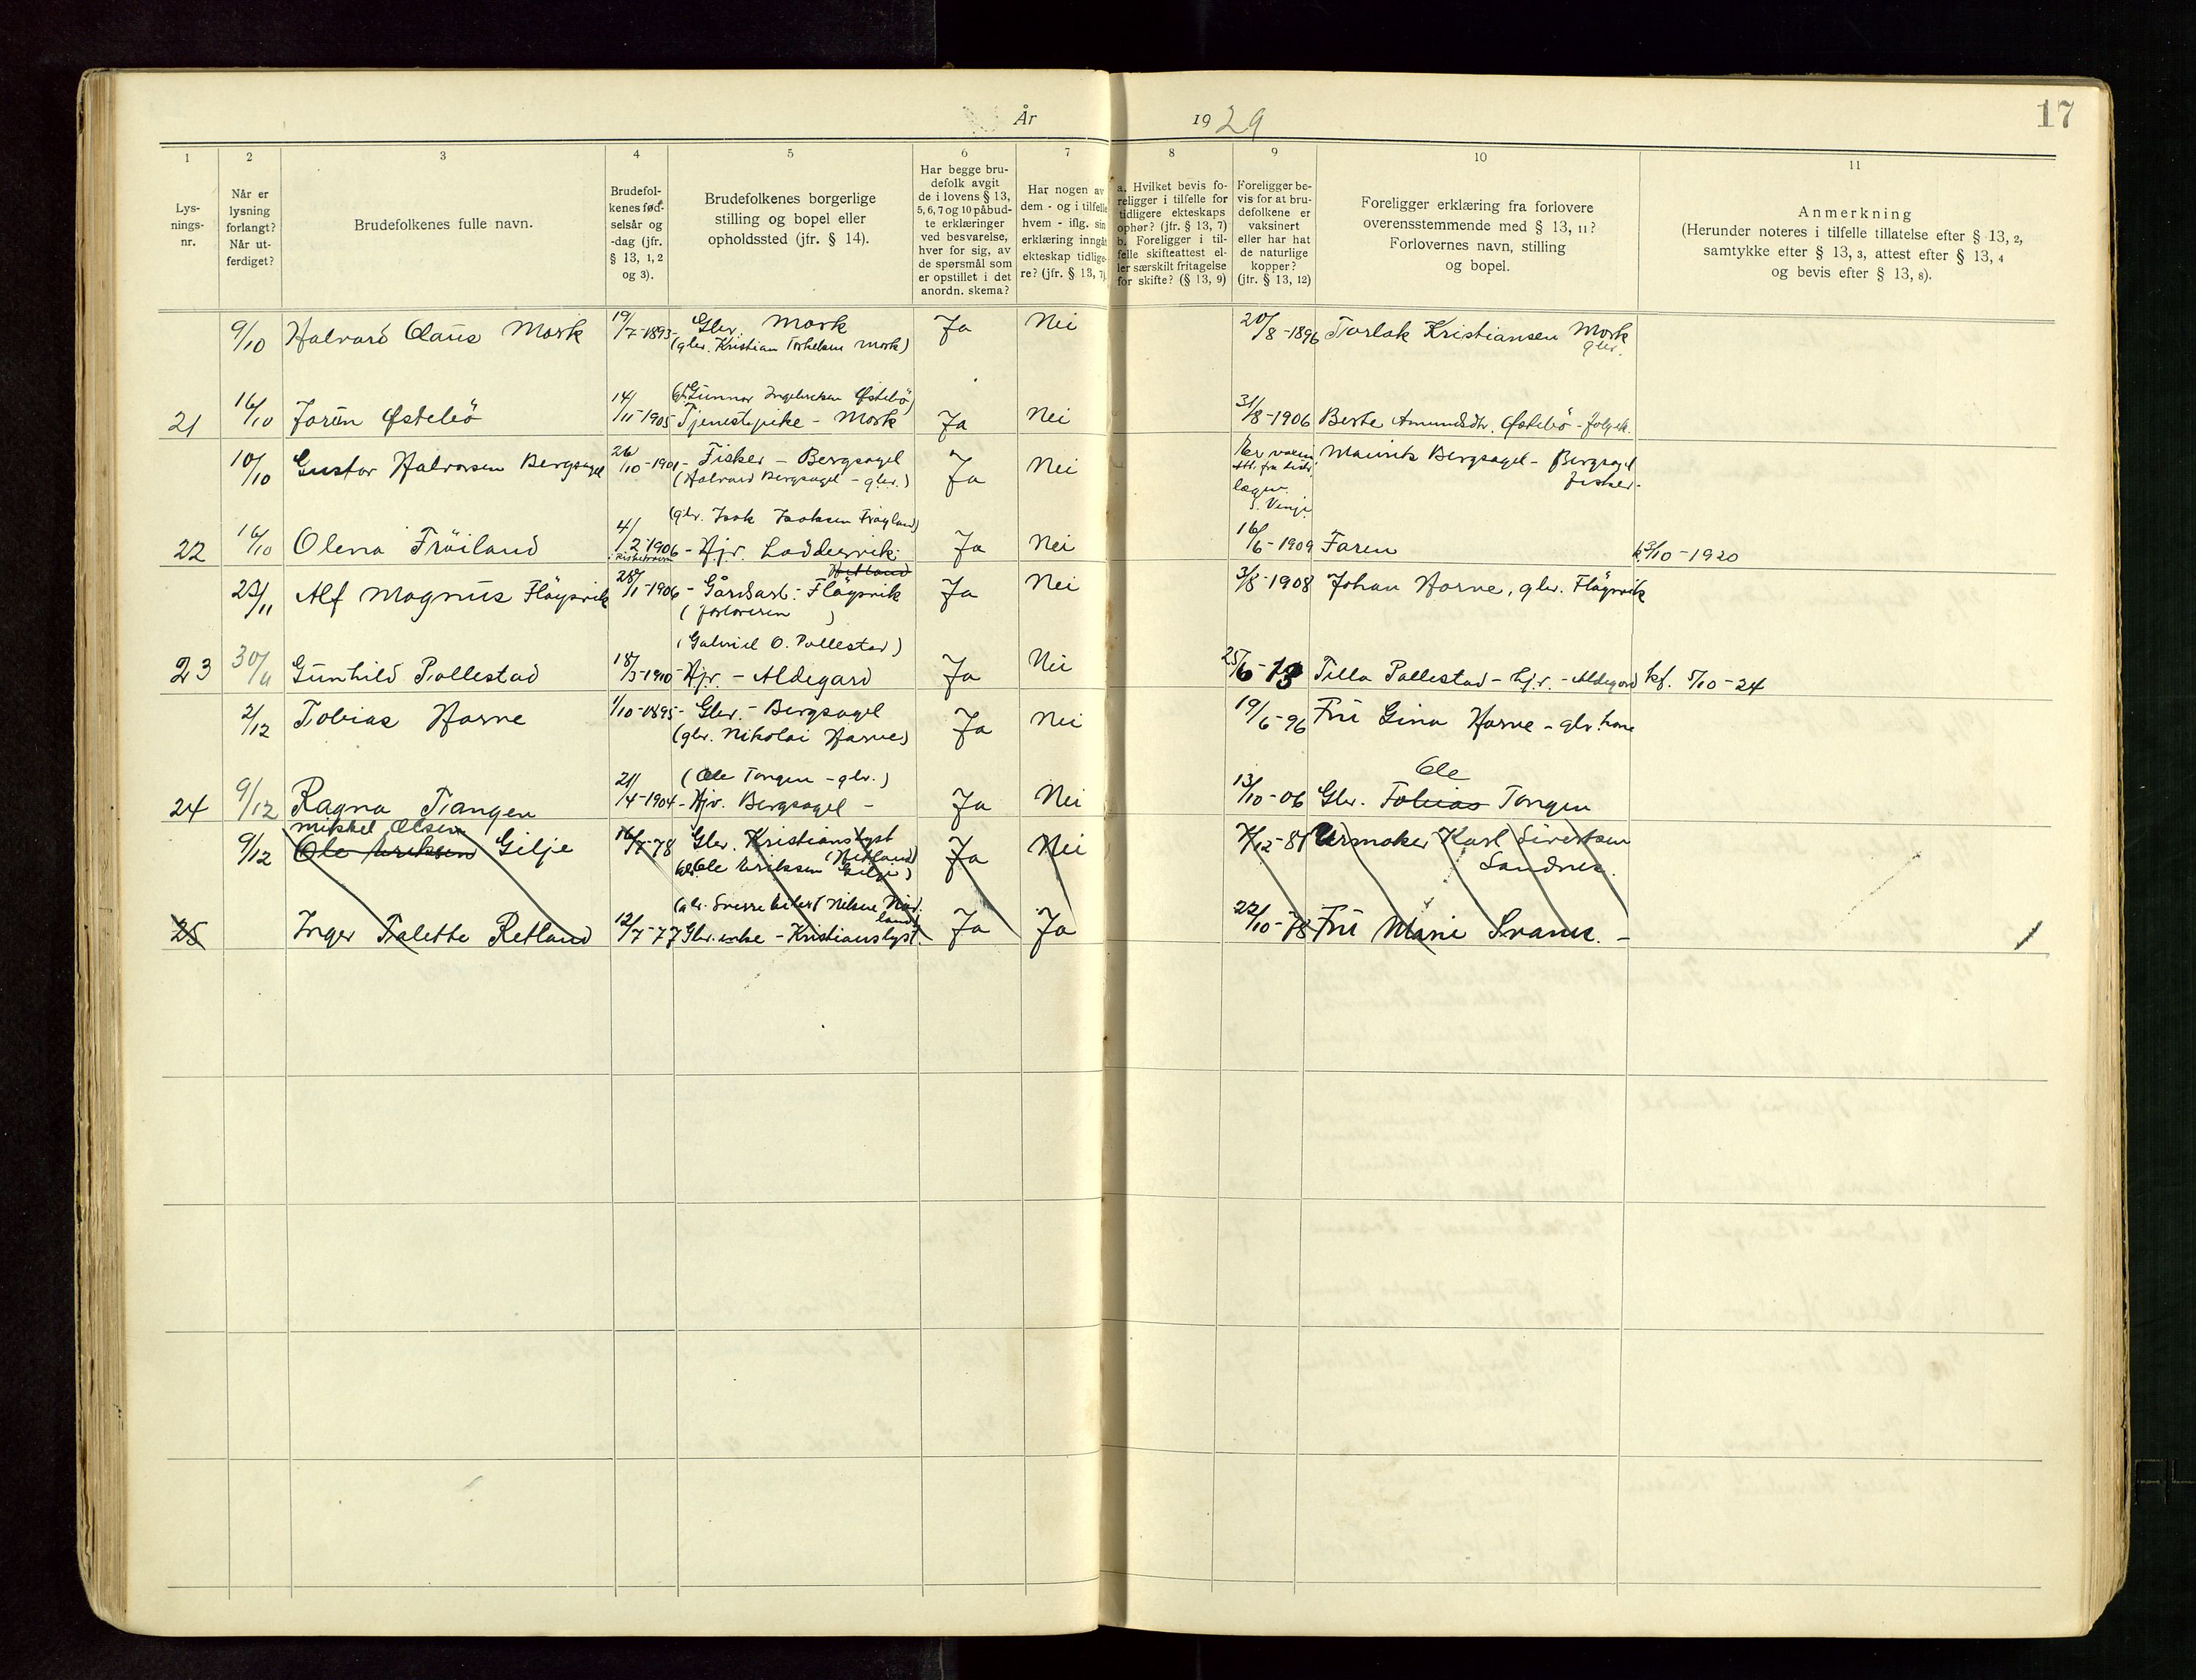 År 1929
17
1 2 3 4 5 6 7 8 9 10 11
Lys-
nings-
nr.
Når er
lysning
forlangt?
Når ut-
ferdiget?
Brudefolkenes fulle navn.
Brudefol-
kenes fød-
selsår og
-dag (jfr.
§ 13, 1, 2
og 3).
Brudefolkenes borgerlige
stilling og bopel eller
opholdssted (jfr. § 14).
Har begge bru-
defolk avgit
de i lovens § 13,
5, 6, 7 og 10 påbud-
te erklæringer
ved besvarelse,
hver for sig, av
de spørsmål som
er opstillet i det
anordn. skema?
Har nogen av
dem - og i tilfelle
hvem - iflg. sin
erklæring inngåt
ekteskap tidlige-
re? (jfr. § 13, 7)
a. Hvilket bevis fo-
religger i tilfelle for
tidligere ekteskaps
ophør? (jfr. § 13, 7)
b. Foreligger i til-
felle skifteattest el-
ler særskilt fritagelse
for skifte? (§ 13, 9)
Foreligger be-
vis for at bru-
defolkene er
vaksinert
eller har hat
de naturlige
kopper?
(jfr. § 13, 12)
Foreligger erklæring fra forlovere
overensstemmende med § 13, 11?
Forlovernes navn, stilling
og bopel.
Anmerkning
(Herunder noteres i tilfelle tillatelse efter § 13, 2,
samtykke efter § 13, 3, attest efter § 13, 4
og bevis efter § 13, 8).
9/10 Halvard Claus Mork 19/7-1893 Gbr. Mork Ja Nei 20/8-1896 Torlak Kristiansen Mork
(gbr. Kristian Torkelsen Mork) gbr.
(Gbr. Gunnar Ingebretsen Østebö)
21 16/10 Jorün Østebö 14/11-1905 Tjenestepike - Mork Ja Nei 31/8-1906 Berte Amundsdtr. Østebö
10/10 Gustav Halvorsen Bergsagel 26/10-1901 - Fisker - Bergsagel Ja Nei Mauritz Bergsagel - Bergsagel
(Halvard Bergsagel - gbr.) fisker.
(gbr. Isak Isaksen Fröyland)
22 16/10 Olena Fröiland 4/2 1906 - Hjv. Laddervik Ja Nei 16/6-1909 Faren 3/10-1920
Hetland
23/11 Alf Magnus Fløysvik 28/1-1906 - Gårdsarb: Fløysvik Ja Nei 3/8-1908 Johan Horve, gbr. Fløysvik
(forloveren)
(Gabriel O. Pollestad)
23 30/11 Gunhild Pollestad 18/3-1910 - Hjv. - Aldegard Ja Nei 25/6-13 Tilla Pollestad - hjv. - Aldegard kf. 5/10-24
2/12 Tobias Horve 1/10-1895 - Gbr. - Bergsagel Ja Nei 19/6-96 Fru Gina Horve - gbr. kone
(gbr. Nikolai Horve)
(Ole Tangen - gbr.) Ole
24 9/12 Ragna Tangen 21/4-1904 - Hjv. Bergsagel - Ja Nei 13/10-06 Gbr. Tobias Tangen
Mikkel Olsen
9/12 Ole Eriksen Gilje 16/7-78 Gbr. Kristianslyst Ja Nei /12-81 Urmaker Karl Sivertsen
(Hetland)
(gbr. Ole Eriksen Gilje) Sandnes.
25 Inger Talette Retland 12/7-77 Gbr. enke - Kristianslyst. Ja Ja 22/10-78 Fru Marie Svanes. -